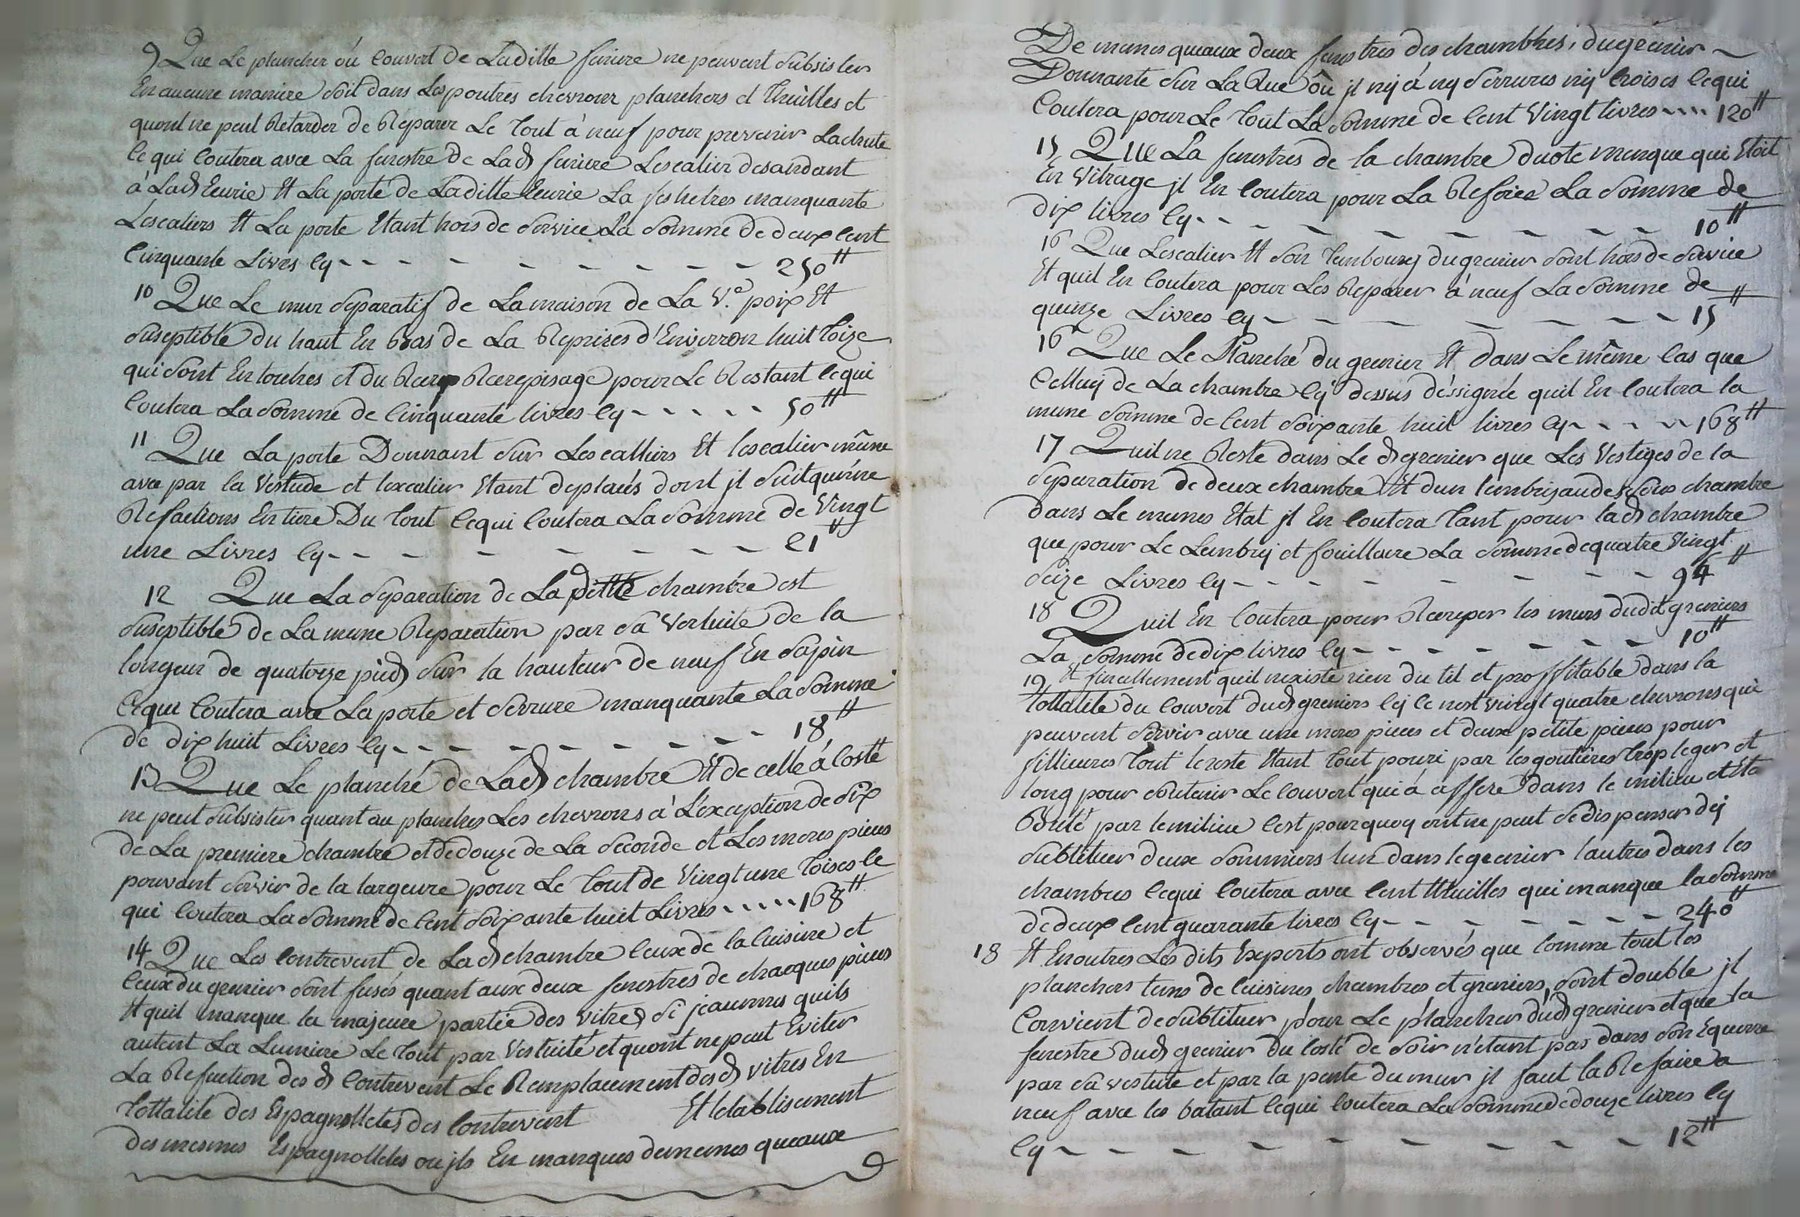 9 Que Le plancher ou Couvert de Ladille furiere ne peuvent Subsister
En aucune maniere Soit dans Les poutres chevronr planchers et thuilles et
quont ne peut Retarder de Reparer Le tout a neuf pour prevenir La chute
ce qui Coutera avec La fenestre de Lad. furiere Lescalier desandant
a Lad. Eeurie Et La porte de Ladille Eeurie La fenhetres manquante
Lescaliers Et La porte Etant hors de Service La Somme de deux Cent
Cinquante Livres Cy - - - - - - - - - 250tt
10 Que Le mur Separatif de La maison de La V.e poix Et
Suseptible du haut En Bas de La Reprizes d'Envirron huit toize
qui Sont En torches et du Recrepisage pour Le Restant Ce qui
Coutera La Somme de Cinquante livres Cy - - - - - 50tt
11 Que La porte Donnant Sur Lescalliers Et lescalier même
avec par la Vestude et lexcalier Etant deplacés dont jl Suit qu'une
Refactions Entiere Du tout Cequi Coutera La Somme de Vingt
une Livres Cy - - - - - - - - 21tt
12 Que La Separation de La petitte chambre est
Suseptible de La meme Reparation par Sa Vertuite de la
longeur de quatorze pied Sur la hauteur de neuf En Sapin
Ceque Coutera avec La porte et Serrure manquante La Somme
de dix huit Livres Cy - - - - - - - - 18tt
13 Que Le planché de Lad. chambre Et de celle a Costé
ne peut Subsister quant au planches Les chevrons a L'exception de Six
de La premiere chambre et de douze de La Seconde et Les mores pieces
pouvant Servir de la largeure pour Le tout de Vingt une toises Ce
qui Coutera La Somme de Cent Soixante huit Livres - - - - 168tt
14 Que Les Contrevent de Lad. chambre Ceux de la Cuisine et
Ceux du grenier Sont fusés quant aux deux fenestres de chacques pieces
Et quil manque la majeure partie des vitres Si jeaunnes quils
autent La Lumiere Le tout par Vestuité et quont ne peut Eviter
La Refaction des d. Contrevent Le Remplacement des d. vitres En
tottalité des Espagnollettes des Contrevent Et letablisement
des mesmes Espagnollettes ou jls En manques de memes queaux
De memes queaux deux fenestres des chambres, du grenier
Donnante Sur La Rue ôu jl nij á ny Serrures nij Croises Cequi
Coutera pour Le tout La Somme de Cent Vingt livres - - - - 120tt
15 Que La fenestres de la chambre du ote manque qui Etoit
En Vitrage jl En Coutera pour La Refaire La Somme de
dix livres Cy - - - - - - - - 10tt
16 Que Lescalier Et Son Tembourg du grenier Sont hors de Service
Et quil En Coutera pour Les Reparer a neuf La Somme de
quinze Livres Cy - - - - - - - 15tt
16 Que Le Planché du grenier Et dans Le même Cas que
Celluy de La chambre Cy dessus désignée quil En Coutera la
meme Somme de Cent Soixante huit livres Cy - - - - 168tt
17 Quil ne Reste dans Le d. grenier que Les Vestiges de la
Separation de deux chambre Et dun Lembrij au dessous chambre
dans Le memes Etat jl En Coutera tant pour lad. chambre
que pour Le Lembrij et fouillaire La Somme de quatre Vingt
Seize Livres Cy - - - - - - - - 96tt
18 Quil En Coutera pour Recreper les murs dudit greniers
La Somme de dix livres Cy - - - - - - - 10tt
19 Et finallement quil nexiste rien du til et proffitable dans la
tottalité du Couvert dud. greniers Cy Ce nest vingt quatre chevrons qui
peuvent Servir avec une mores pieces et deux petite pieces pour
fillieures tout le reste Etant tout pouri par les goutieres trop leger et
long pour Soutenir Le Couvert qui á affesé dans le milieu et Eté
Porité par le milieu C'est pourquoy ont ne peut Se dispenser d'ij
Subtituer deux Sommiers lun dans le grenier lautres dans les
chambres Cequi Coutera avec Cent thuilles qui manque la Somme
de deux Cent quarante livres Cy - - - - - - - 240tt
18 Et En outres Les dits Experts ont observés que Comme tout les
planchers tems de Cuisines chambres et greniers, Sont double jl
Convient de Subtituer pour Le plancher dud. grenier et que la
fenestre dud. grenier du Costé de Soir n'etant pas dans Son Equerre
par Sa vestuté et par la pente du mur jl faut la Refaire a
neuf avec les batant Cequi Coutera La Somme de douze livres Cy
Cy - - - - - - - - 12tt